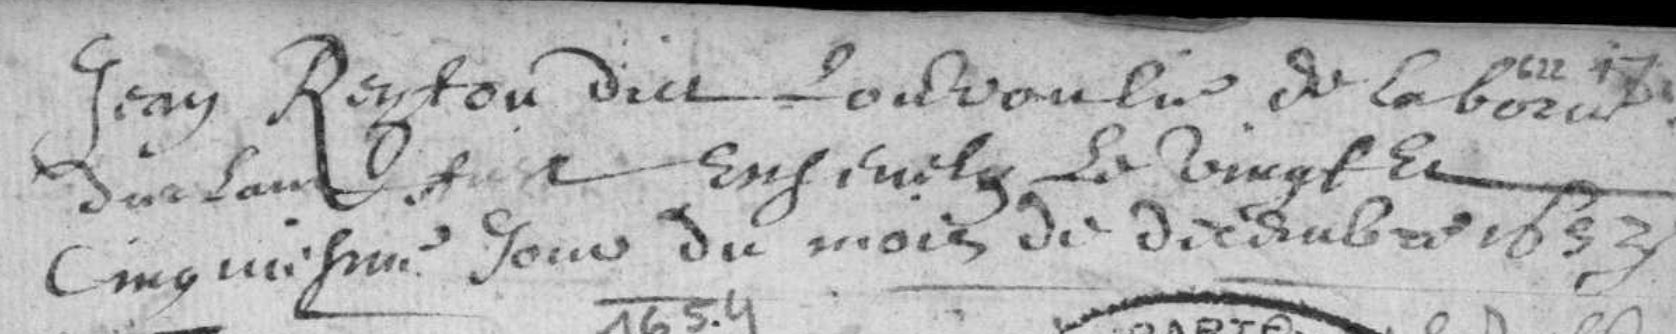 Jean Reytou dict Louvoulie de la borie
fut ensevely le vingt et
cinquiesme jour du mois de decembre 1653
1654